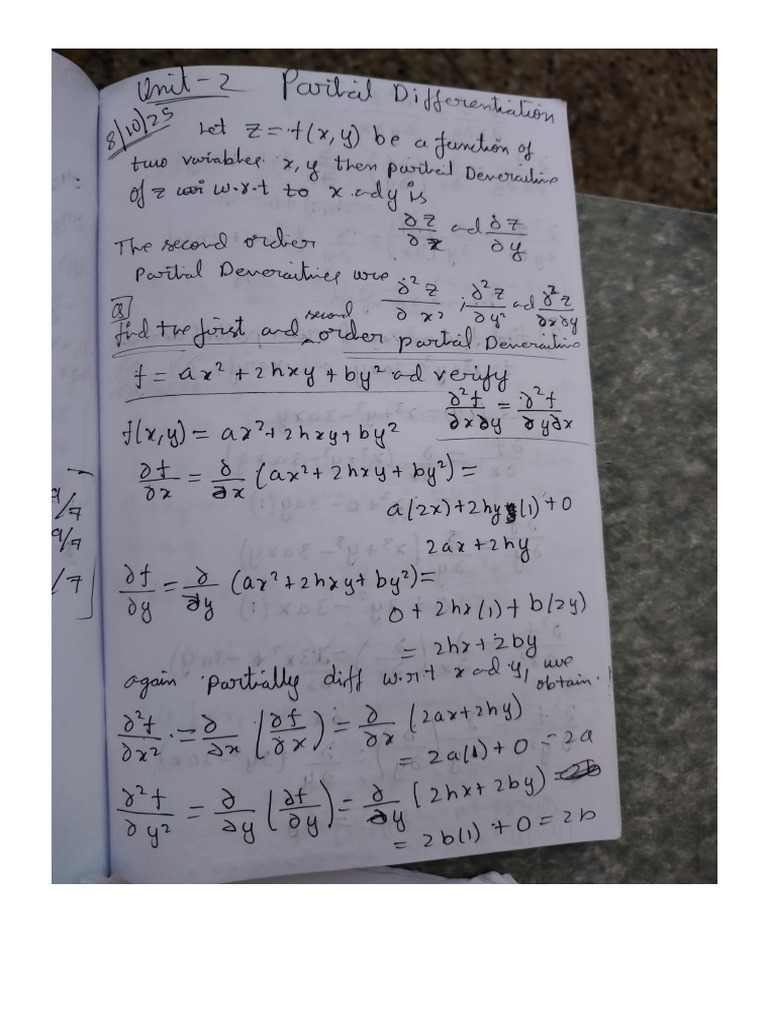 Unit-2 Partial Differentiation
8/10/25
Let z = f(x,y) be a function of
two variables x, y then partial Deneraitive
of z w.r.t to x ad y is
∂z/∂x ad ∂z/∂y
The second order
Partial Deneraitives are ∂²z/∂x² ; ∂²z/∂y² ad ∂²z/∂x∂y
Q
find the first and second order partial Deneraitive
f = ax² + 2hxy + by² ad verify
∂²f/∂x∂y = ∂²f/∂y∂x
f(x,y) = ax² + 2hxy + by²
∂f/∂x = ∂/∂x (ax² + 2hxy + by²) =
a(2x) + 2hy(1) + 0
2ax + 2hy
∂f/∂y = ∂/∂y (ax² + 2hxy + by²) =
0 + 2hx(1) + b(2y)
= 2hx + 2by
again partially diff w.r.t x ad y, we obtain.
∂²f/∂x² = ∂/∂x (∂f/∂x) = ∂/∂x (2ax + 2hy)
= 2a(1) + 0 = 2a
∂²f/∂y² = ∂/∂y (∂f/∂y) = ∂/∂y (2hx + 2by) =
= 2b(1) + 0 = 2b
9/7
9/7
/7